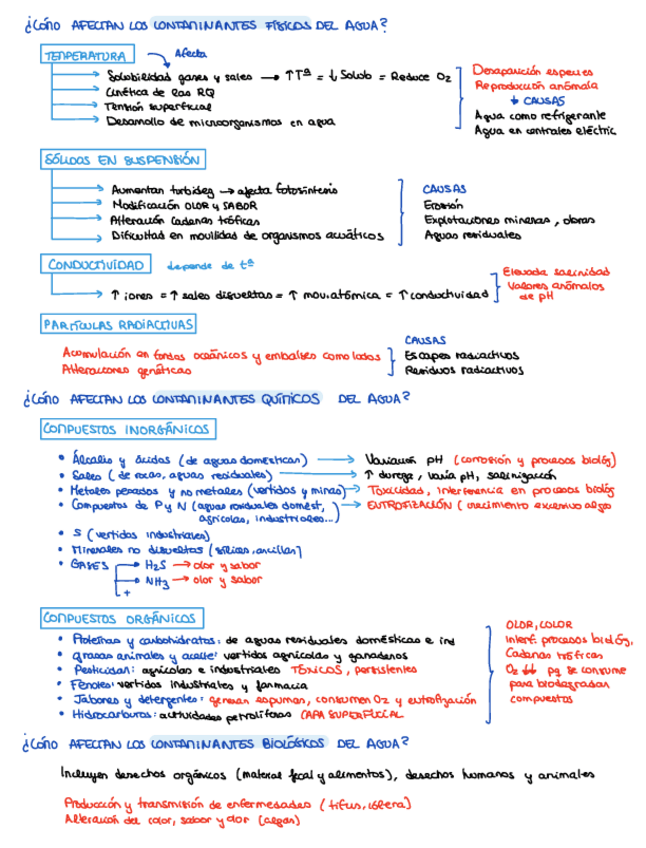 ¿CÓMO AFECTAN LOS CONTAMINANTES FÍSICOS DEL AGUA?
TEMPERATURA
Afecta
Solubilidad gases y sales → ↑Tª = ↓ Solub = Reduce O2
Cinética de las RQ
Tensión superficial
Desarrollo de microorganismos en agua
Desaparición especies
Reproducción anómala
↓ CAUSAS
Agua como refrigerante
Agua en centrales eléctric
SÓLIDOS EN SUSPENSIÓN
Aumentan turbidez → afecta fotosíntesis
Modificación OLOR y SABOR
Alteración cadenas tróficas
Dificultad en movilidad de organismos acuáticos
CAUSAS
Erosión
Explotaciones mineras, obras
Aguas residuales
CONDUCTIVIDAD depende de tª
↑ iones = ↑ sales disueltas = ↑ mov.atómica = ↑ conductividad
Elevada salinidad
Valores anómalos
de pH
PARTÍCULAS RADIACTIVAS
Acumulación en fondos oceánicos y embalses como lodos
Alteraciones genéticas
CAUSAS
Escapes radiactivos
Residuos radiactivos
¿CÓMO AFECTAN LOS CONTAMINANTES QUÍMICOS DEL AGUA?
COMPUESTOS INORGÁNICOS
• Álcalis y ácidos (de aguas domésticas) → Variación pH (corrosión y procesos biológ)
• Sales (de rocas, aguas residuales) → ↑ dureza, varía pH, salinización
• Metales pesados y no metales (vertidos y minas) → Toxicidad, interferencia en procesos biológ
• Compuestos de P y N (aguas residuales domést, agrícolas, industriales...) → EUTROFIZACIÓN (crecimiento excesivo algas
• S (vertidos industriales)
• Minerales no disueltos (sílices, arcillas)
• GASES → H2S → olor y sabor
→ NH3 → olor y sabor
+
COMPUESTOS ORGÁNICOS
• Proteínas y carbohidratos: de aguas residuales domésticas e ind
• grasas animales y aceite: vertidos agrícolas y ganaderos
• Pesticidas: agrícolas e industriales TÓXICOS, persistentes
• Fenoles: vertidos industriales y farmacia
• Jabones y detergentes: generan espumas, consumen O2 y eutrofización
• Hidrocarburos: actividades petrolíferas CAPA SUPERFICIAL
OLOR, COLOR
Interf. procesos biológ,
Cadenas tróficas
O2 ↓↓ pq se consume
para biodegradar
compuestos
¿CÓMO AFECTAN LOS CONTAMINANTES BIOLÓGICOS DEL AGUA?
Incluyen desechos orgánicos (material fecal y alimentos), desechos humanos y animales
Producción y transmisión de enfermedades (tifus, cólera)
Alteración del color, sabor y olor (algas)